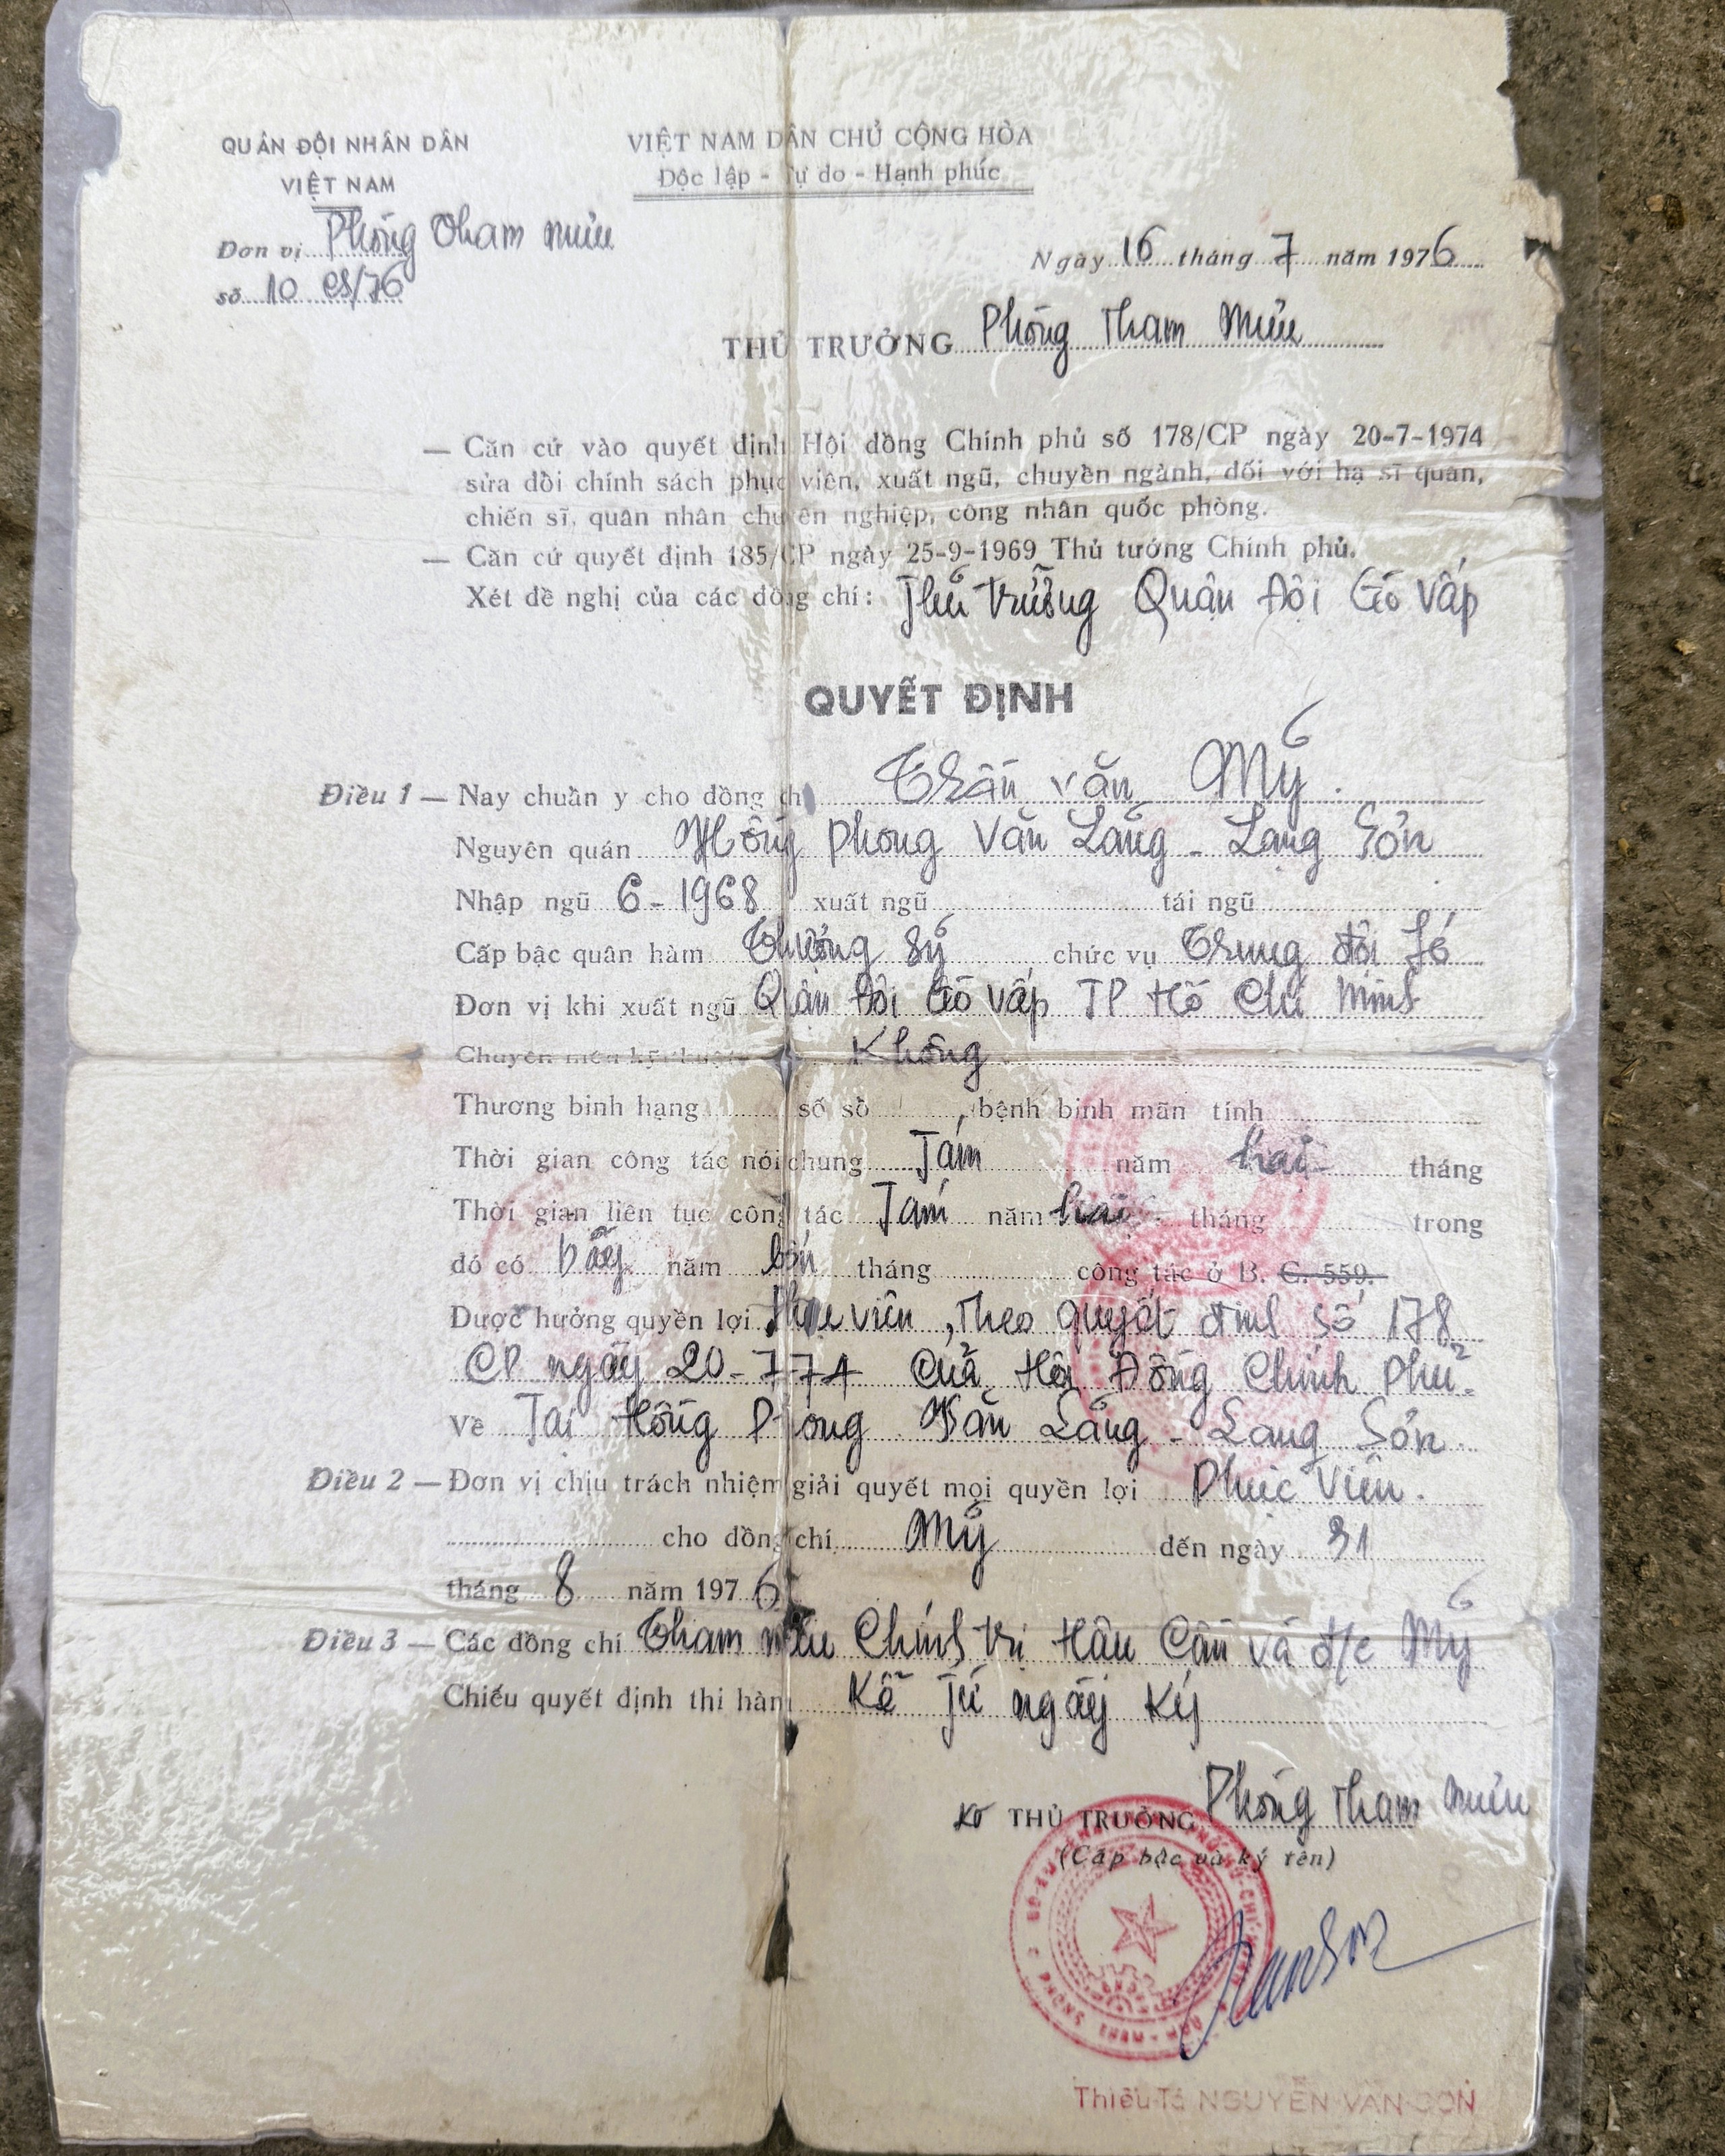 QUÂN ĐỘI NHÂN DÂN
VIỆT NAM
VIỆT NAM DÂN CHỦ CỘNG HÒA
Độc lập - Tự do - Hạnh phúc
Đơn vị Phòng Tham mưu
số 10 CS/76
Ngày 16 tháng 7 năm 1976
THỦ TRƯỞNG Phòng Tham Mưu
— Căn cứ vào quyết định Hội đồng Chính phủ số 178/CP ngày 20-7-1974
sửa đổi chính sách phục viên, xuất ngũ, chuyển ngành, đối với hạ sĩ quan,
chiến sĩ, quân nhân chuyên nghiệp, công nhân quốc phòng.
— Căn cứ quyết định 185/CP ngày 25-9-1969 Thủ tướng Chính phủ.
Xét đề nghị của các đồng chí: Thủ trưởng Quận Đội Gò Vấp
QUYẾT ĐỊNH
Điều 1 — Nay chuẩn y cho đồng chí Trần văn Mỷ.
Nguyên quán Hồng Phong Văn Lãng - Lạng Sơn
Nhập ngũ 6-1968 xuất ngũ tái ngũ
Cấp bậc quân hàm Thượng sỹ chức vụ Trung đội fó
Đơn vị khi xuất ngũ Quận Đội Gò Vấp TP Hồ Chí Minh
Chuyên môn kỹ thuật Không
Thương binh hạng số sổ, bệnh binh mãn tính
Thời gian công tác nói chung Tám năm hai tháng
Thời gian liên tục công tác Tám năm hai tháng trong
đó có bảy năm bốn tháng công tác ở B. C. 559.
Được hưởng quyền lợi Phục viên, Theo quyết định số 178
CP ngày 20-7-74 Của Hội Đồng Chính Phủ.
Về Tại Hồng Phong Văn Lãng - Lạng Sơn.
Điều 2 — Đơn vị chịu trách nhiệm giải quyết mọi quyền lợi Phục Viên.
cho đồng chí Mỷ đến ngày 31
tháng 8 năm 1976
Điều 3 — Các đồng chí Tham mưu Chính trị Hậu Cần và đ/c Mỷ
Chiếu quyết định thi hành Kể Từ ngày Ký
THỦ TRƯỞNG Phòng Tham Mưu
(Cấp bậc và ký tên)
Thiếu Tá NGUYỄN VĂN SƠN